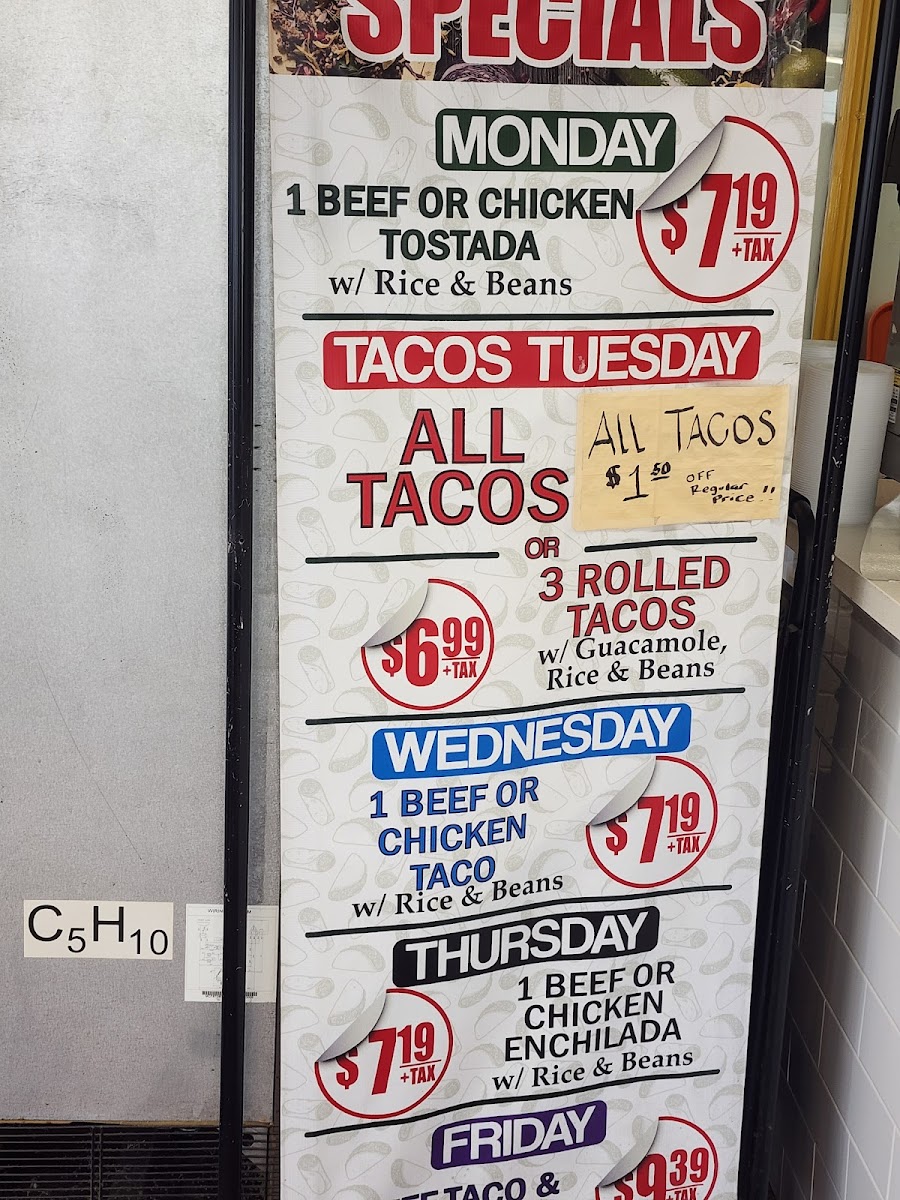 SPECIALS
MONDAY
1 BEEF OR CHICKEN
TOSTADA
w/ Rice & Beans
$7 19
+TAX
TACOS TUESDAY
ALL
TACOS
ALL TACOS
$1 50 OFF
Regular
Price!!
OR
3 ROLLED
TACOS
w/ Guacamole,
Rice & Beans
$6 99
+TAX
WEDNESDAY
1 BEEF OR
CHICKEN
TACO
w/ Rice & Beans
$7 19
+TAX
THURSDAY
1 BEEF OR
CHICKEN
ENCHILADA
w/ Rice & Beans
$7 19
+TAX
FRIDAY
TACO &
$9 39
+TAX
C5H10